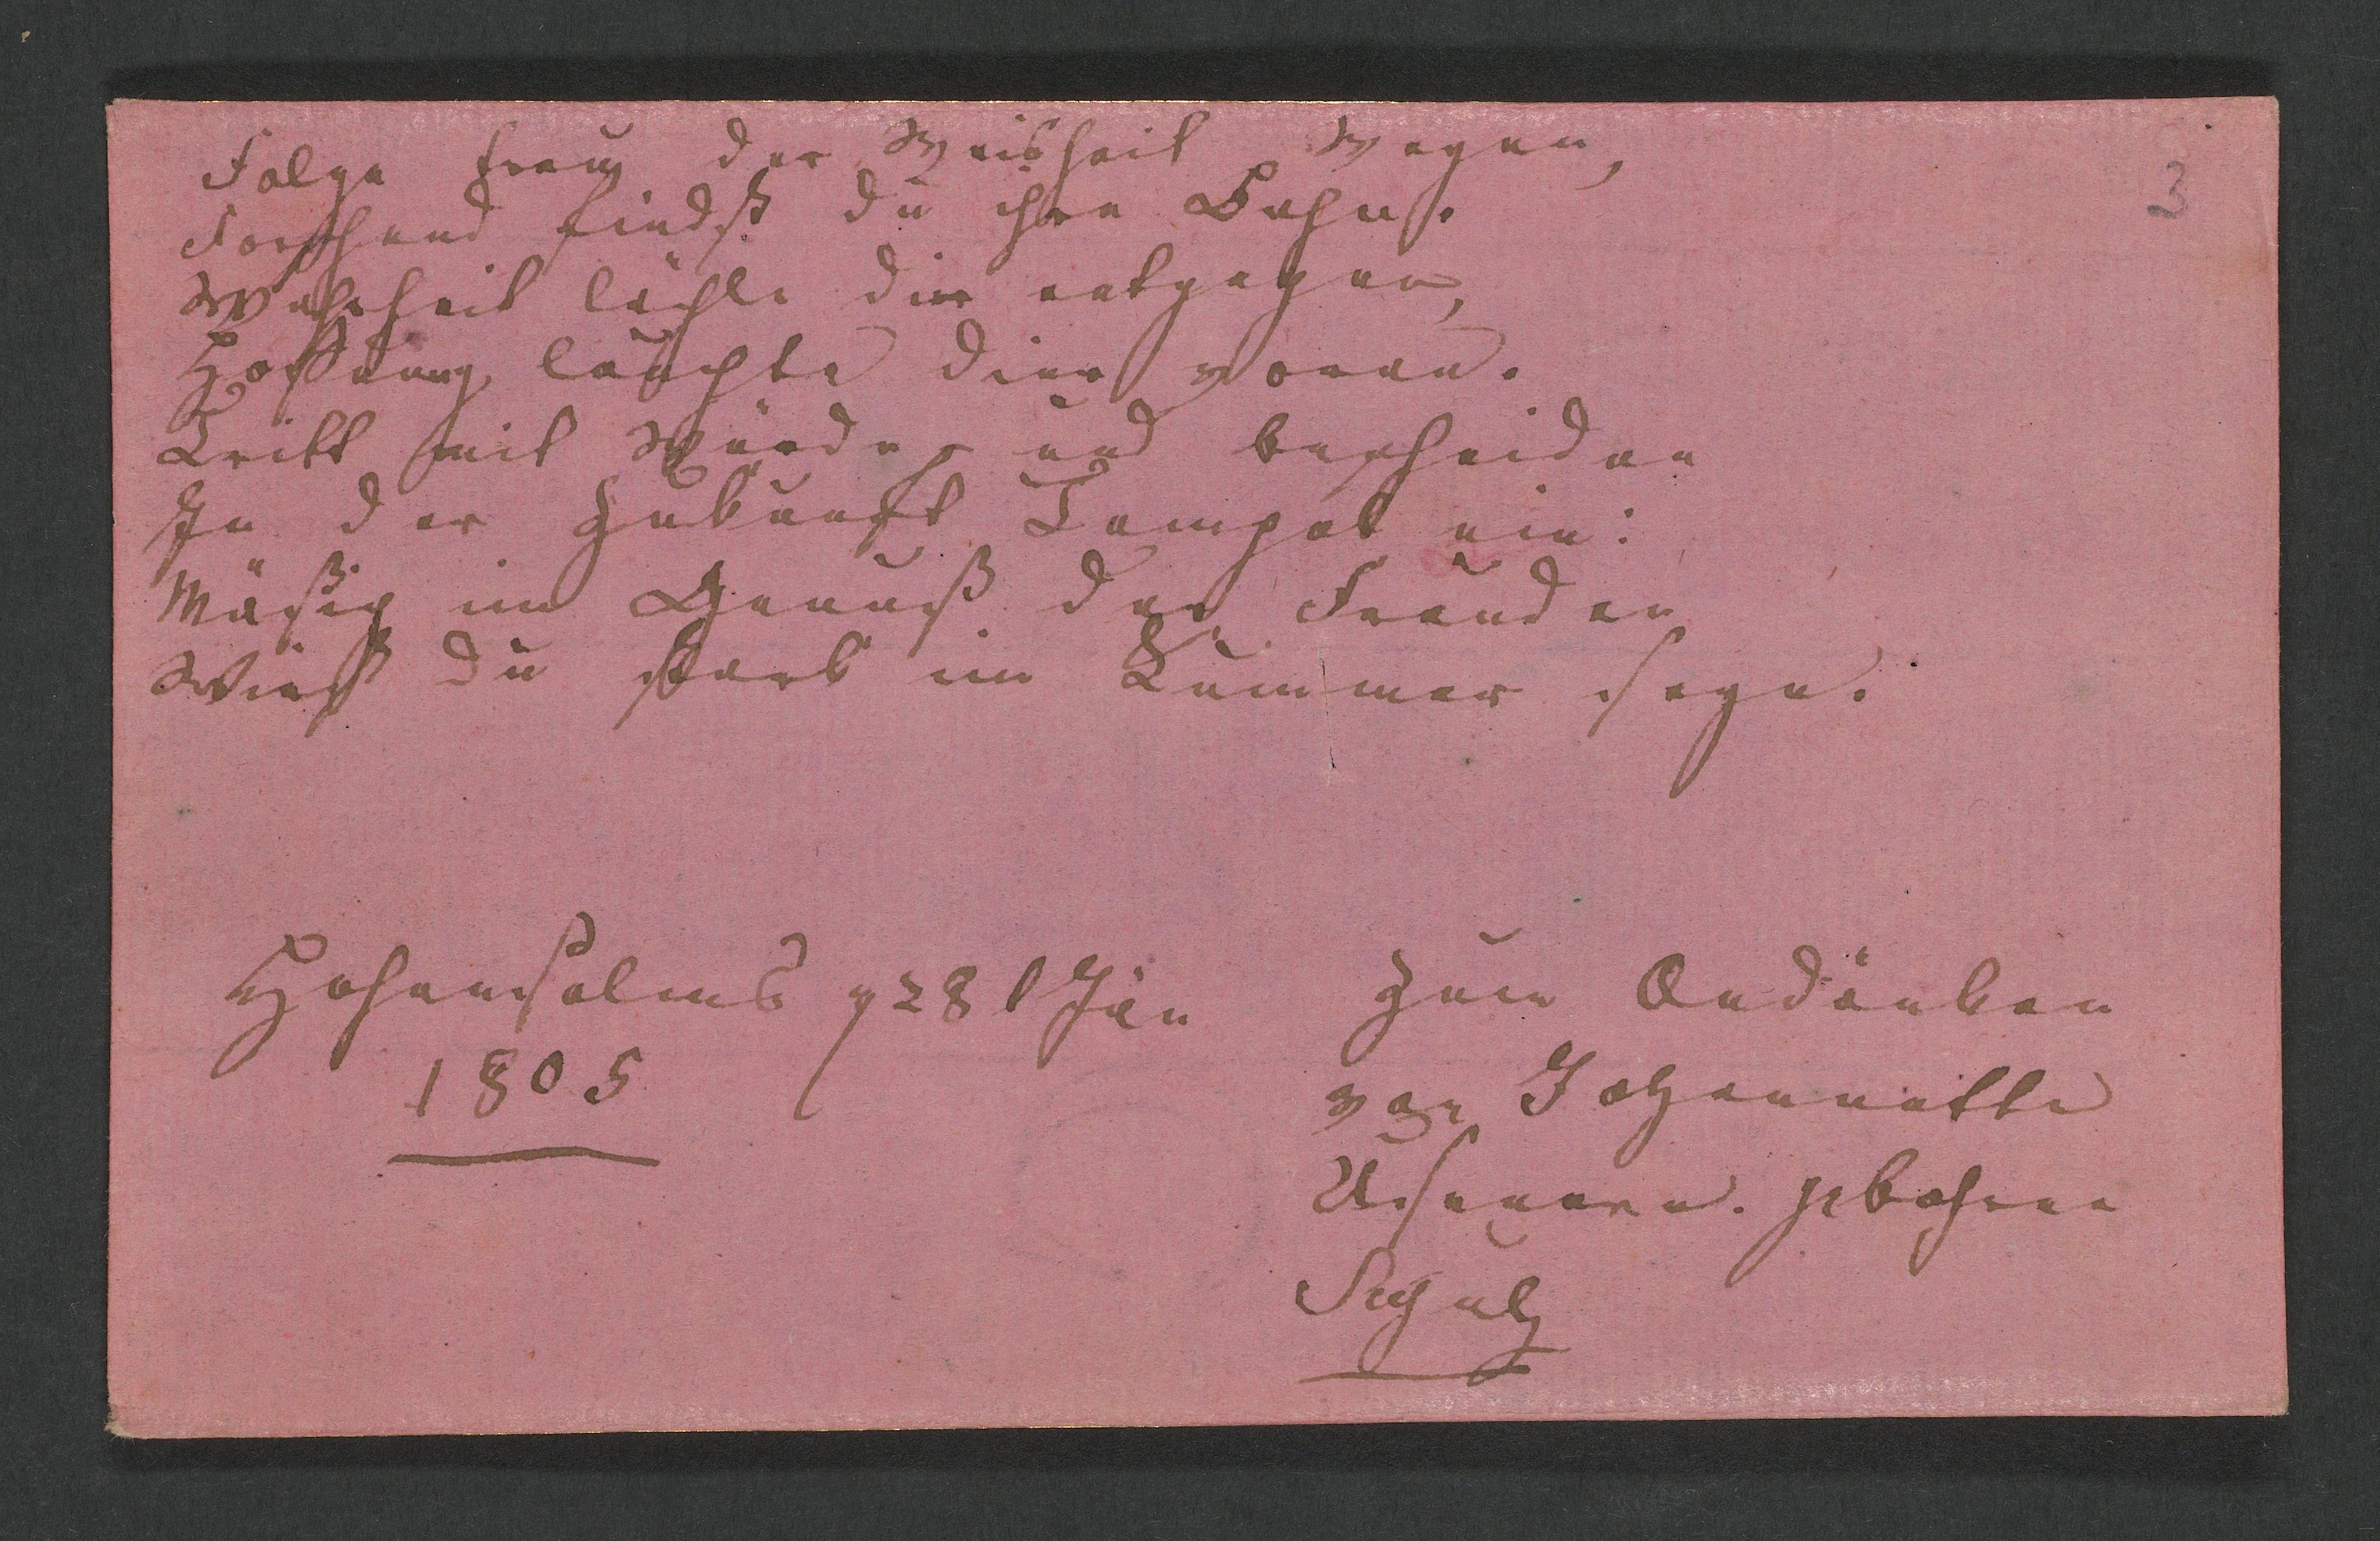 Folge treu der Weisheit Wegen,
3
Forschend findst du ihre Bahn.
Wahrheit lächle dir entgegen,
Hoffnung leuchte dier voran.
Tritt mit Würde und bescheiden
In der Zukunft Tempel ein:
Mäsig im Genuß der Freuden
Wirst du stark im Kummer seyn.
Hohensolms 28 Jän
1805
Zum Andänken
von Johannette
gebohrne
Schulz